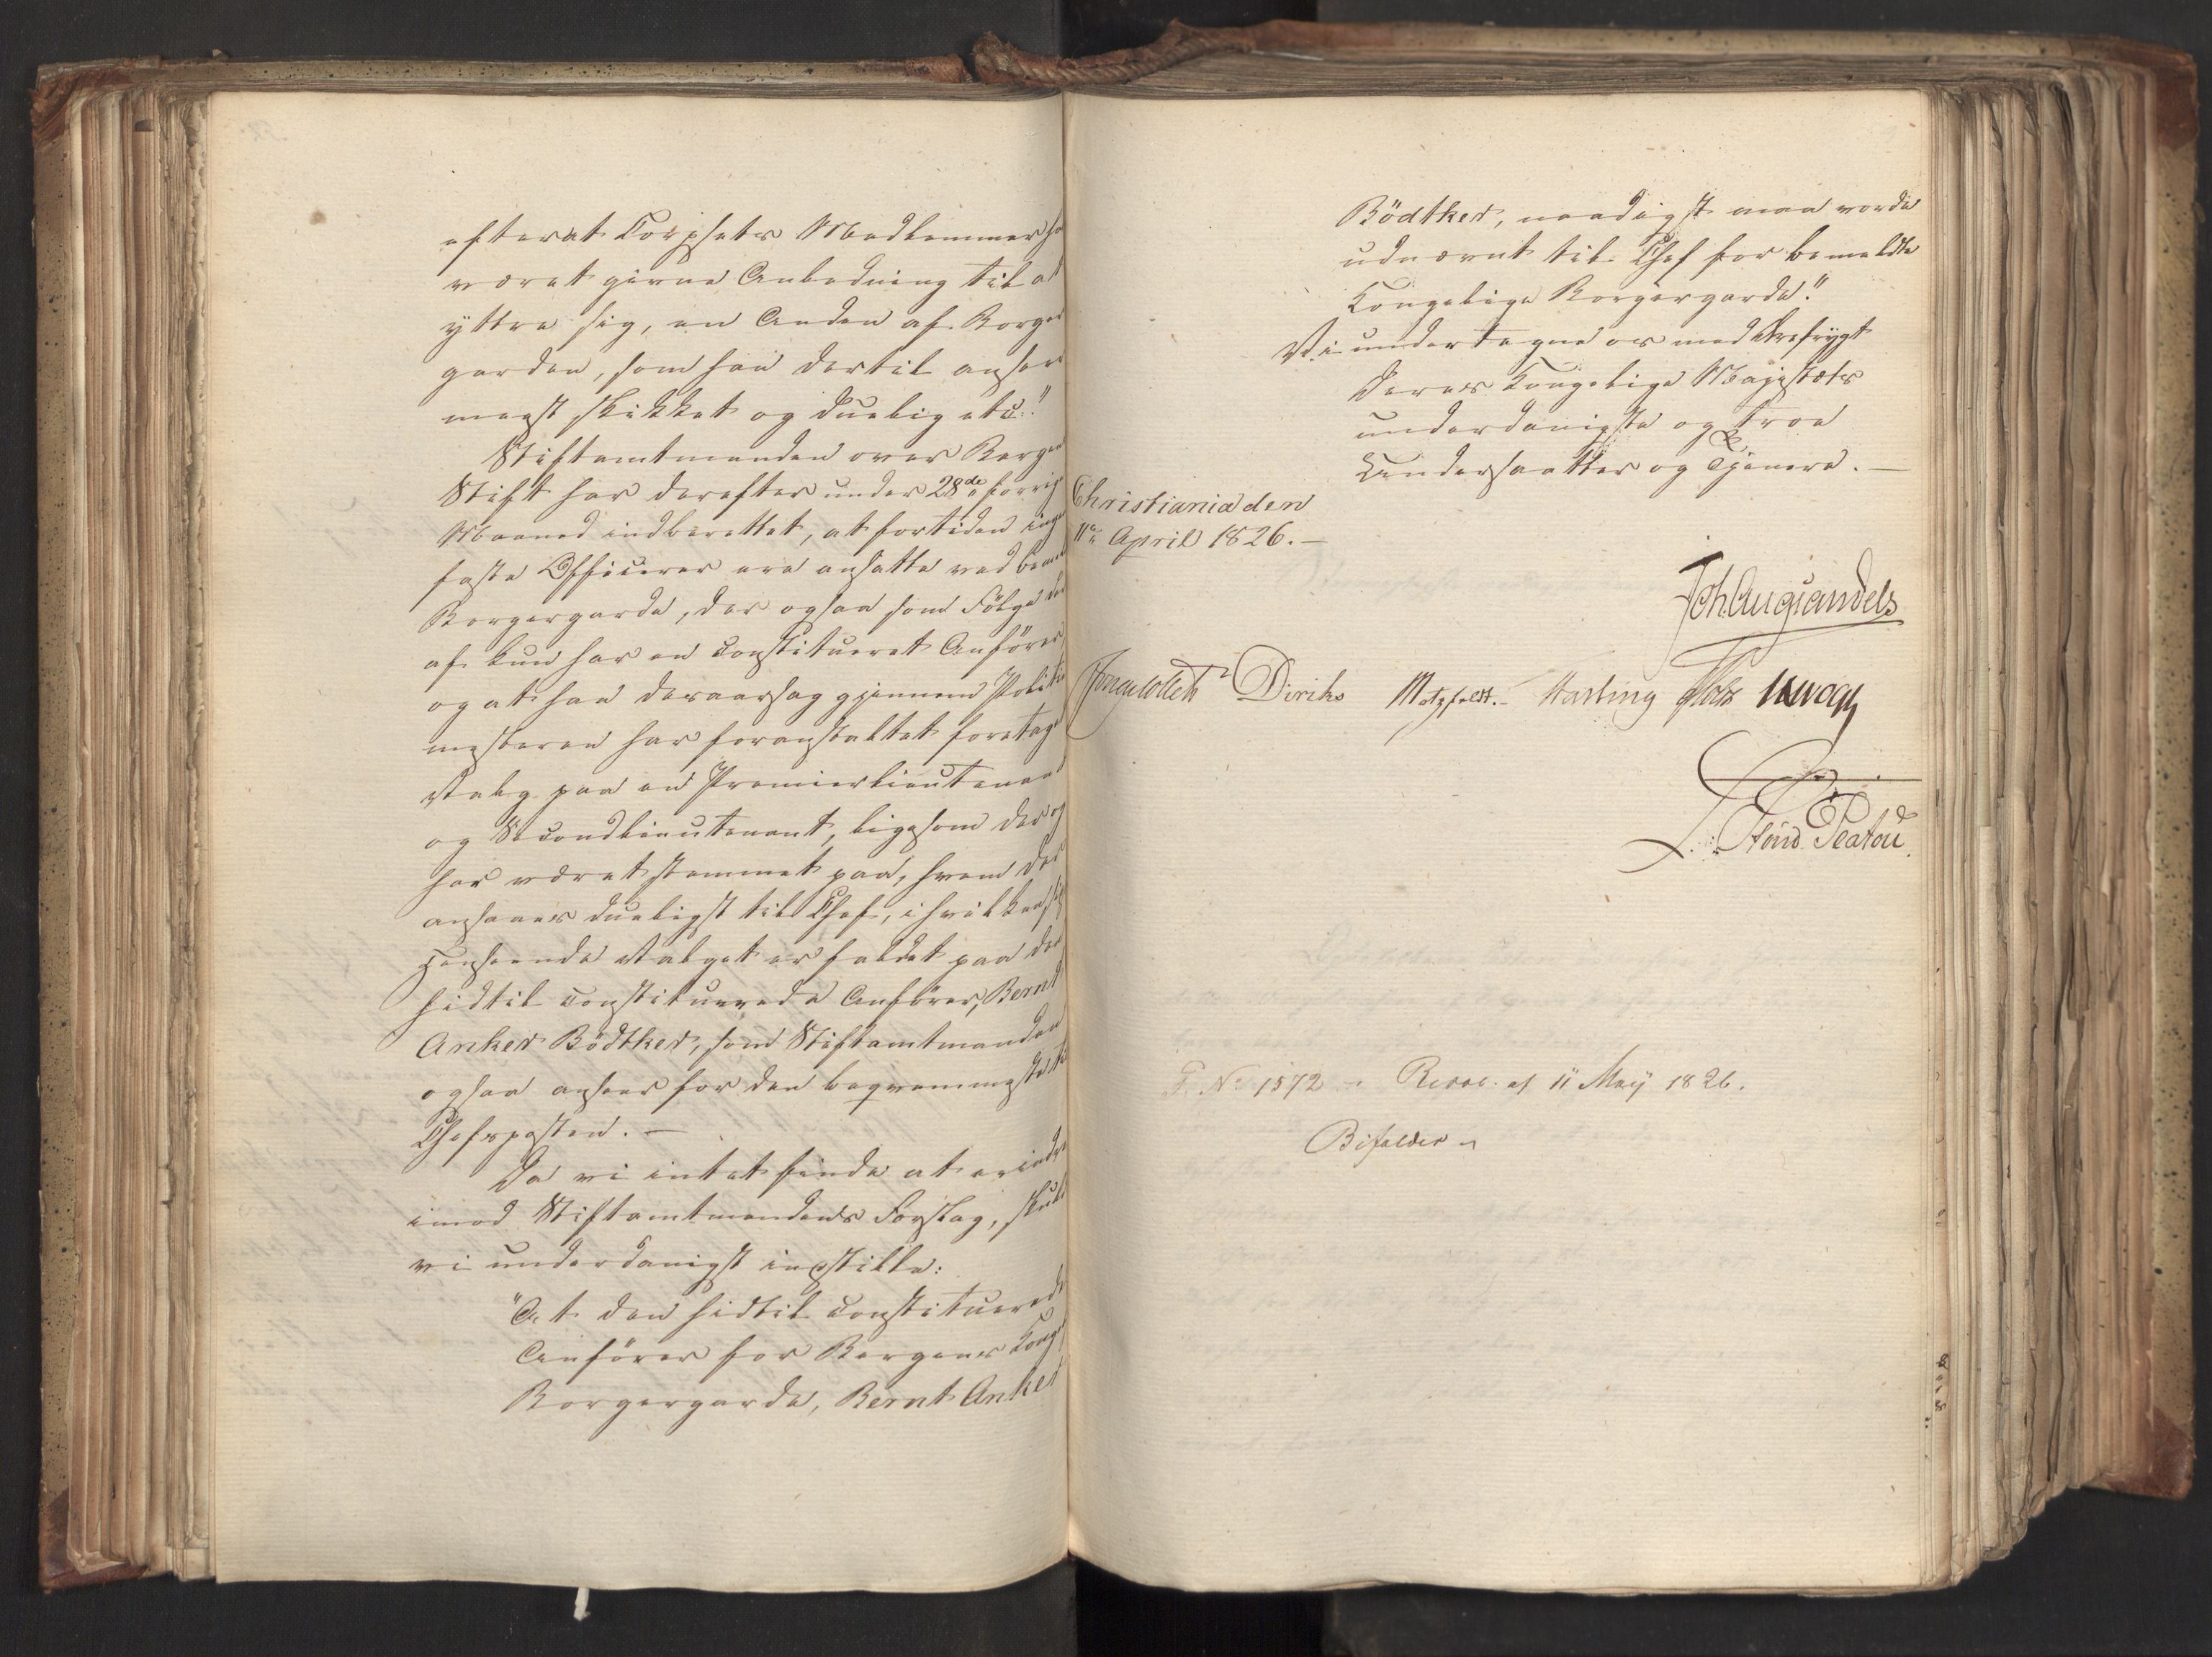 efterat Corpsets Medlemmer ha
været givne Anledning til at
yttre sig, en Anden af Borger
garden, som han dertil anseer
meest skikket og duelig etc."
Stiftamtmanden over Bergens
Stift har derefter under 28de forrige
Maaned indberettet, at fortiden inge
faste Officerer ere ansatte ved bem
Borgergarde, der ogsaa som Følge der
af kun har en constitueret Anfører,
og at han deraarsag gjennem Politie
mesteren har foranstaltet foretaget
Valg paa en Premierlieutenant
og Secondlieutenant, ligesom der og
har været stemmet paa, hvem der
ansaaes dueligst til Chef, i hvilken
Henseende Valget er faldet paa den
hidtil constituerede Anfører, Bernt
Anker Bödtker, som Stiftamtmanden
ogsaa anseer for den beqvemmeste til
Chefsposten. —
Da vi intet finde at erindre
imod Stiftamtmandens Forslag, skulle
vi underdanigst indstille:
"At den hidtil constituerede
Anfører for Bergens Kongel
Borgergarde, Bernt Anker
Bödtker, naadigst maa vorde
udnævnt til Chef for bemeldte
Kongelige Borgergarde."
Vi undertegne os med Ærefrygt
Deres Kongelige Majestæts
underdanigste og troe
Undersaatter og Tjenere. —
Christiania den
11te April 1826. —
Joh. Aug. Sandels
Collett Diriks Motzfeldt. Fasting Holst Krogh
Peatou.
P. No 1572 Resol. af 11 May 1826.
Bifaldes